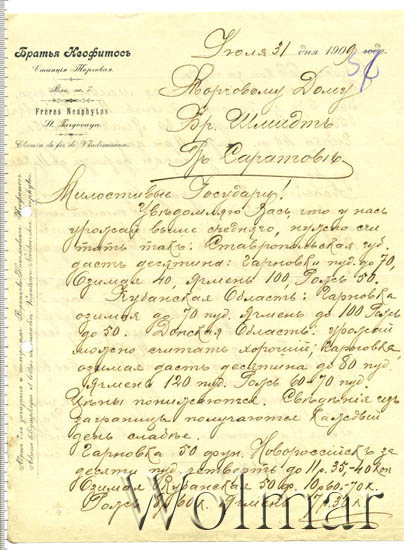 Братья Неофитосъ
Станція Торговая.
Вл. ж. д.
Frères Néophytos
St. Torgovaya.
Chemin de fer de Vladicaucase.
Июля 31 дня 1909 года.
Торговому Дому
Бр. Шмидтъ
Гр. Саратовъ
Милостивые Государи!
Увѣдомляю Васъ, что у насъ
урожай выше средняго, нужно счи
тать такъ: Ставропольская губ.
дастъ десятина: Гарновки пуд. до 70,
Озимая 40, Ячмень 100, Рожь 50.
Кубанская Область: Гарновка
озимая до 70 пуд. Ячмень до 100 Рожь
до 50. Донская Область: урожай
можно считать хорошій; Гарновка,
озимая дастъ десятина до 80 пуд.
Ячмень 120 пуд. Рожь 60-70 пуд.
Цѣны понижаются. Свѣдѣнія изъ
заграницы получаются каждый
день слабѣе.
Гарновка 50 фун. Новороссійскъ за
десять пуд. четверть до 11р.35-40 коп
Озимая Кубанская 50 ф. 10р.60-70 к.
Рожь 60 к. Ячмень
Wolmar